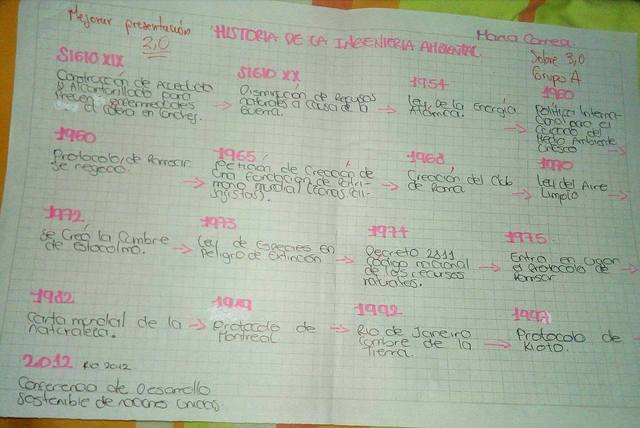 Mejorar presentación
2,0
HISTORIA DE LA INGENIERIA AMBIENTAL
Maria Correa
Sobre 3,0
Grupo A
SIGLO XIX
Construcción de Acueducto
y Alcantarillado para
Preven enfermedades
el colera en Londres.
SIGLO XX
Disminución de Recursos
naturales a causa de la
Guerra.
1954
Ley de la Energía
Atomica.
1960
Política Interna-
cional para el
cuidado del
Medio Ambiente
Unesco
1960
Protocolo de Ramsar
se negoco.
1965
Petición de Creación de
una fundación de Patri-
monio mundial (zonas
1968
Creación del Club
de Roma
1970
Ley del Aire
Limpio
1972
Se Creó la Cumbre
de Estocolmo.
1973
Ley de Especies en
Peligro de Extincion
1974
Decreto 2811
Código nacional
de los recursos
naturales.
1975
Entra en vigor
el Protocolo de
Ramsar
1982
Carta mundial de la
naturaleza.
1989
Protocolo de
Montreal
1992
Rio de Janeiro
Cumbre de la
Tierra.
1997
Protocolo de
Kioto.
2.012 RIO 2012
Conferencia de Desarrollo
Sostenible de naciones unidas.